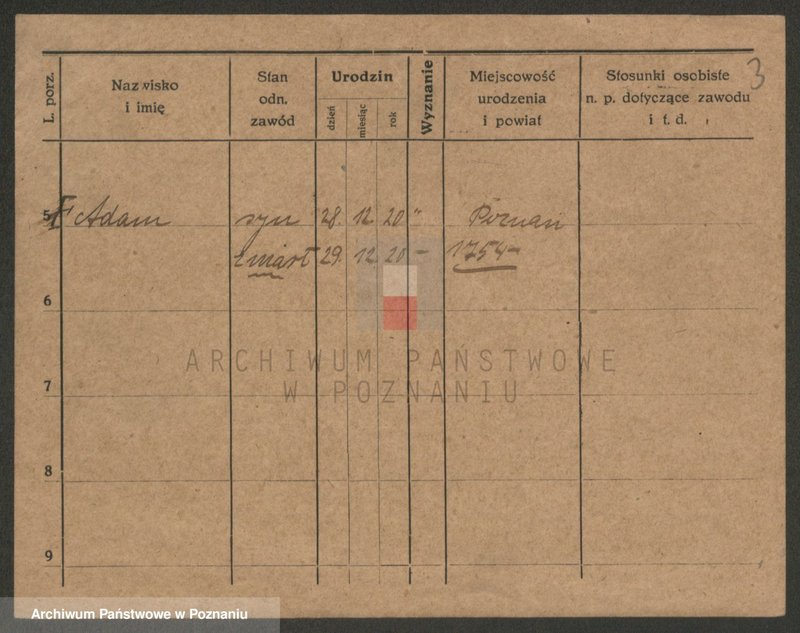 3
L. porz.
Nazwisko
i imię
Stan
odn.
zawód
Urodzin
dzień
miesiąc
rok
Wyznanie
Miejscowość
urodzenia
i powiat
Stosunki osobiste
n. p. dotyczące zawodu
i t. d.
5 Adam syn 28. 12 20 " Poznań
zmarł 29. 12 20 – 1754–
6
7
8
9
ARCHIWUM PAŃSTWOWE
W POZNANIU
Archiwum Państwowe w Poznaniu